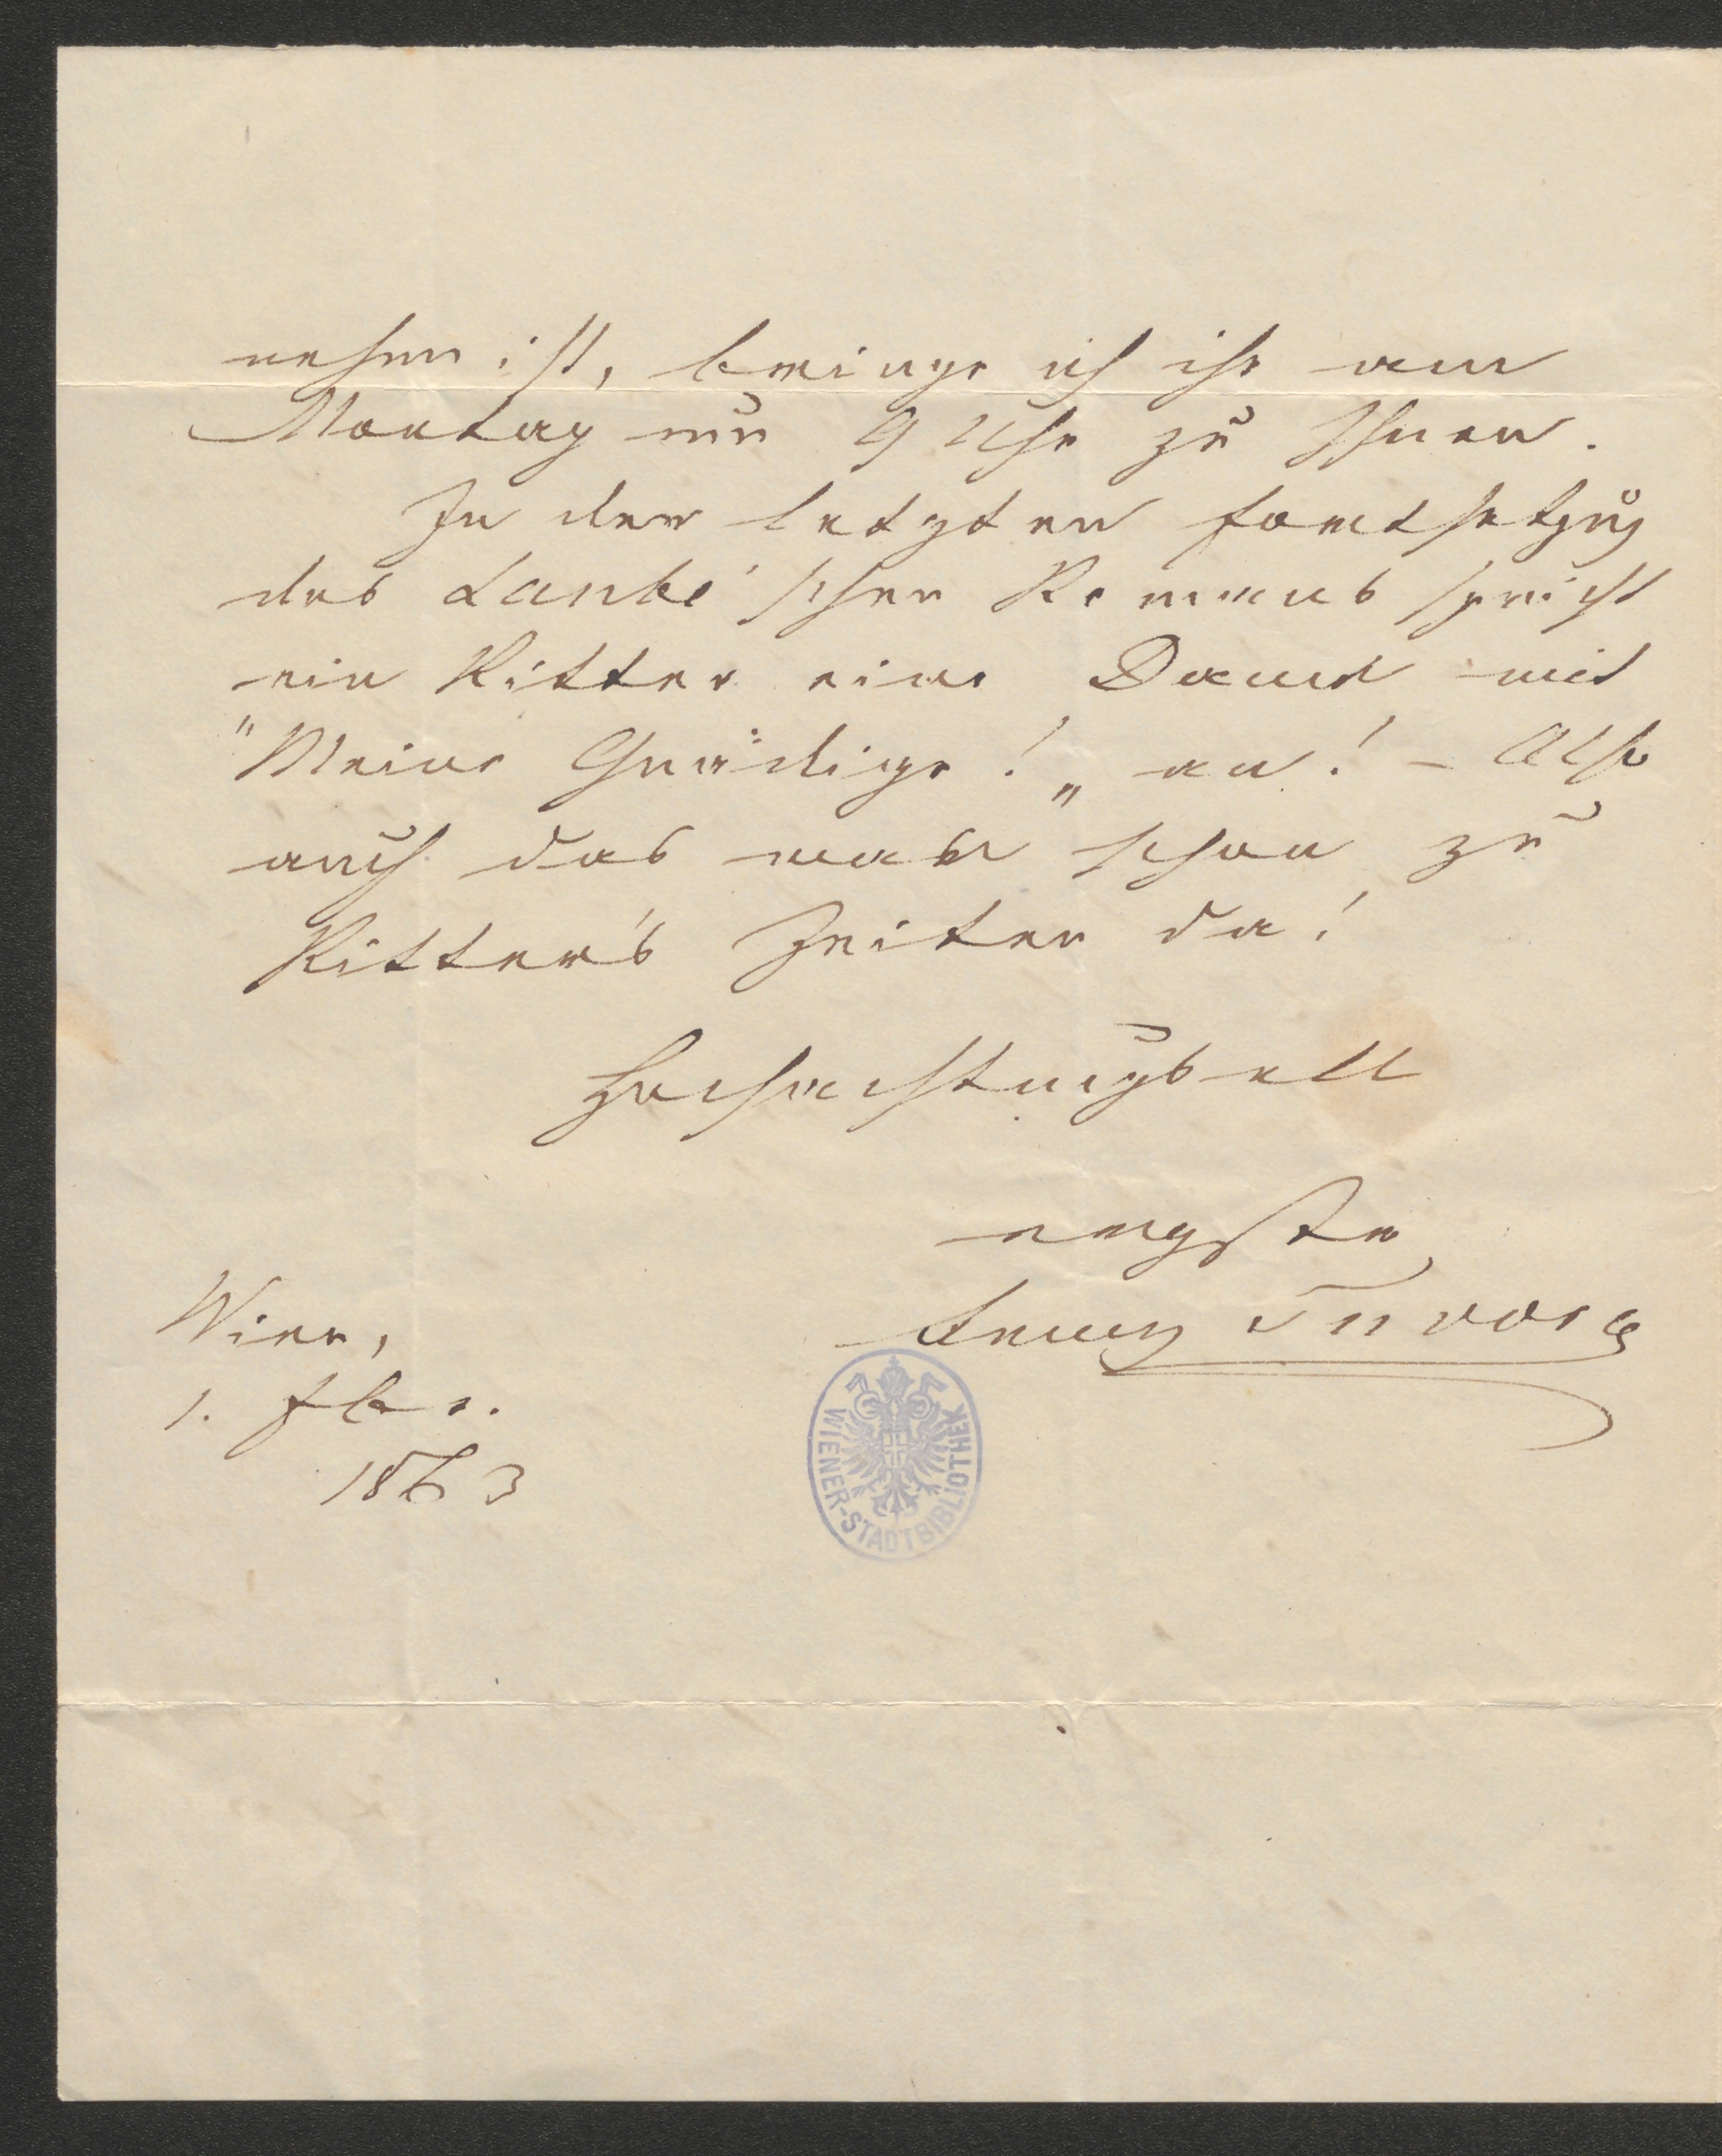 nehm ist, bringe ich ihr am
Montag um 9 Uhr zu Ihnen.
In der letzten Fortsetzug
des Laube'schen Romans spricht
ein Ritter eine Dame mit
"Meine Gnädige!„ an! – Also
auch das war schon zu
Ritter's Zeiten da!
Hochachtungsvoll
Wien,
1. Fbr.
1863
WIENER-STADTBIBLIOTHEK